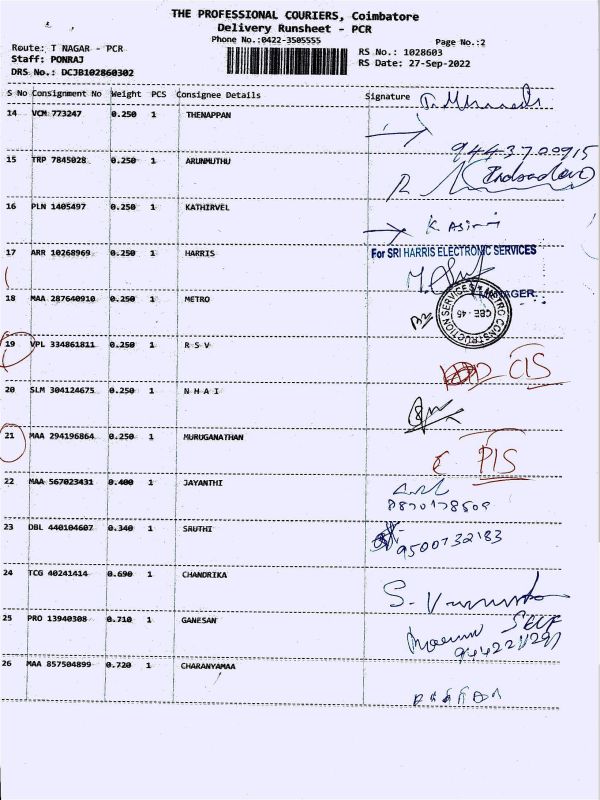 THE PROFESSIONAL COURIERS, Coimbatore
Delivery Runsheet - PCR
Phone No.:0422-3505555
Page No.:2
Route: T NAGAR - PCR
RS No.: 1028603
Staff: PONRAJ
RS Date: 27-Sep-2022
DRS No.: DCJB102860302
S No Consignment No Weight PCS Consignee Details Signature
14 VCM 773247 0.250 1 THENAPPAN
9443700915
15 TRP 7845028 0.250 1 ARUNMUTHU
16 PLN 1405497 0.250 1 KATHIRVEL
K
For SRI HARRIS ELECTRONIC SERVICES
17 ARR 10268969 0.250 1 HARRIS
MANAGER
18 MAA 287640910 0.250 1 METRO
METRO CONSTRUCTION SERVICES
CBE - 45
19 VPL 334861811 0.250 1 R S V
CIS
20 SLM 304124675 0.250 1 N H A I
21 MAA 294196864 0.250 1 MURUGANATHAN
PIS
22 MAA 567023431 0.400 1 JAYANTHI
23 DBL 440104607 0.340 1 SRUTHI
9500732183
24 TCG 40241414 0.690 1 CHANDRIKA
25 PRO 13940308 0.710 1 GANESAN
SELF
26 MAA 857504899 0.720 1 CHARANYAMAA